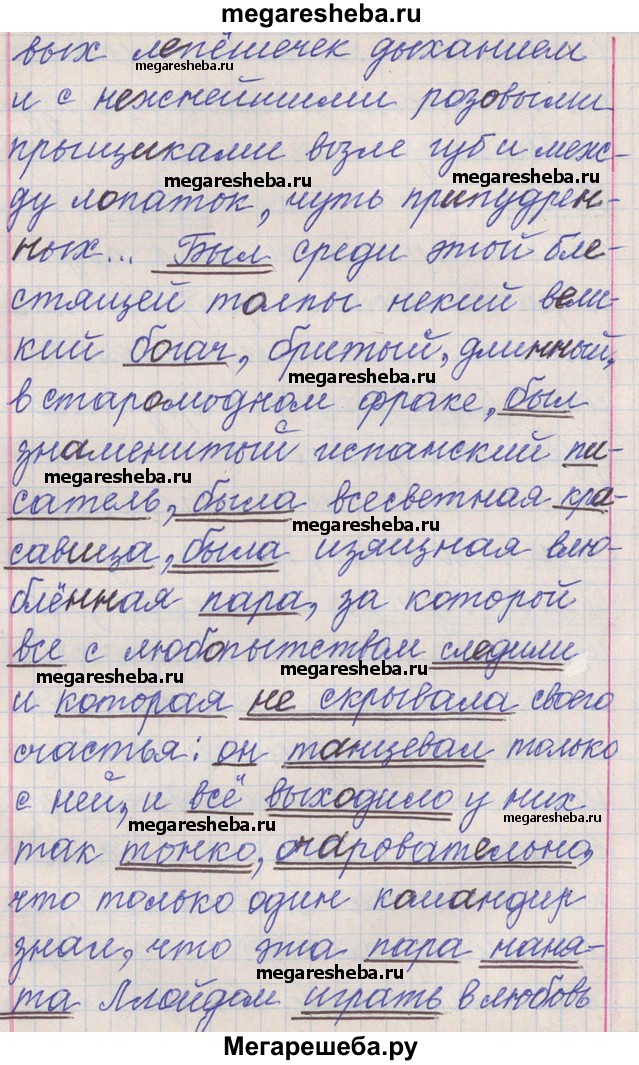 megaresheba.ru
вых лепёшечек дыханием
megaresheba.ru
и с нежнейшими розовыми
прыщиками возле губ и меж-
megaresheba.ru megaresheba.ru
ду лопаток, чуть припудрен-
ных... Был среди этой бле-
стящей толпы некий вели-
кий богач, бритый, длинный,
megaresheba.ru
в старомодном фраке, был
знаменитый испанский пи-
megaresheba.ru
сатель, была всесветная кра-
megaresheba.ru
савица, была изящная влю-
блённая пара, за которой
все с любопытством следили
megaresheba.ru megaresheba.ru
и которая не скрывала своего
счастья: он танцевал только
с ней, и всё выходило у них
megaresheba.ru megaresheba.ru
так тонко, очаровательно,
что только один командир
знал, что эта пара наня-
megaresheba.ru
та Ллойдом играть в любовь
Мегарешеба.ру